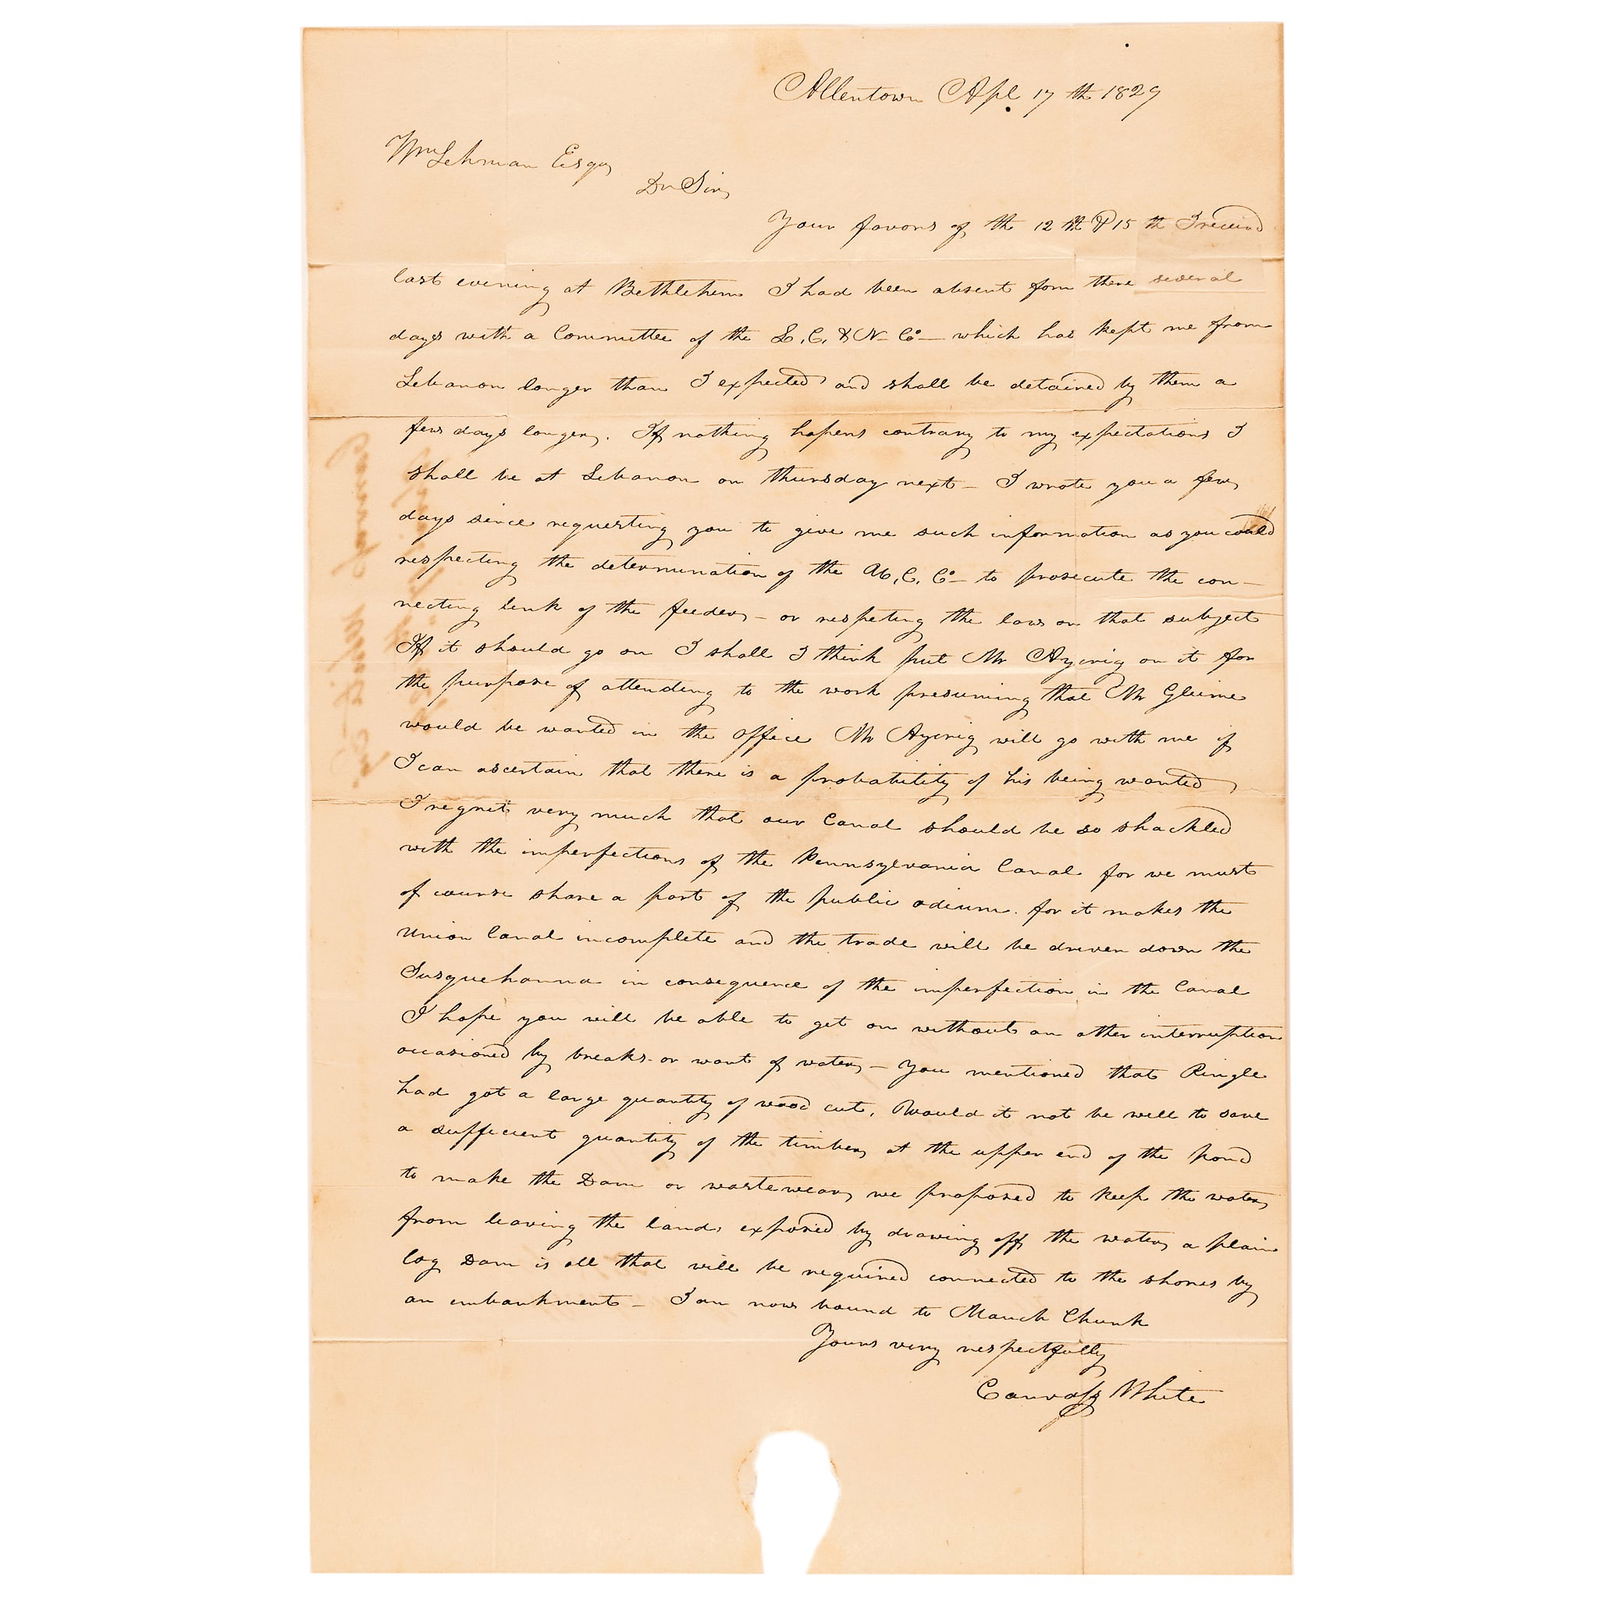 Allentown Apl 17 th 1829
Wm Lehman Esqr
Dr Sir,
Your favors of the 12 th & 15 th I recievd
last evening at Bethlehem I had been absent form there several
days with a Committee of the L. C. & N Co — which has kept me from
Lebanon longer than I expected and shall be detained by them a
few days longer. If nothing hapens contrary to my expectations I
shall be at Lebanon on thursday next — I wrote you a few
days since requesting you to give me such information as you could
respecting the determination of the U. C. Co — to prosecute the con-
necting link of the feeder — or respeting the law on that subject
If it should go on I shall I think put Mr Aycrig on it for
the purpose of attending to the work presuming that Mr Gleime
would be wanted in the office Mr Aycrig will go with me if
I can ascertain that there is a probability of his being wanted
I regret very much that our Canal should be so shackled
with the imperfections of the Pennsylvania Canal for we must
of course share a part of the public odium. for it makes the
Union Canal incomplete and the trade will be driven down the
Susquehanna in consequence of the imperfection in the Canal
I hope you will be able to get on without an other interruption
occasioned by breaks or want of water — You mentioned that Ringle
had got a large quantity of wood cut, Would it not be well to save
a suffecient quantity of the timber at the upper end of the pond
to make the Dam or waste wear we proposed to keep the water
from leaving the lands exposed by drawing off the water a plain
log Dam is all that will be required connected to the shores by
an embankment — I am now bound to Mauch Chunk
Yours very respectfully
Canvass White